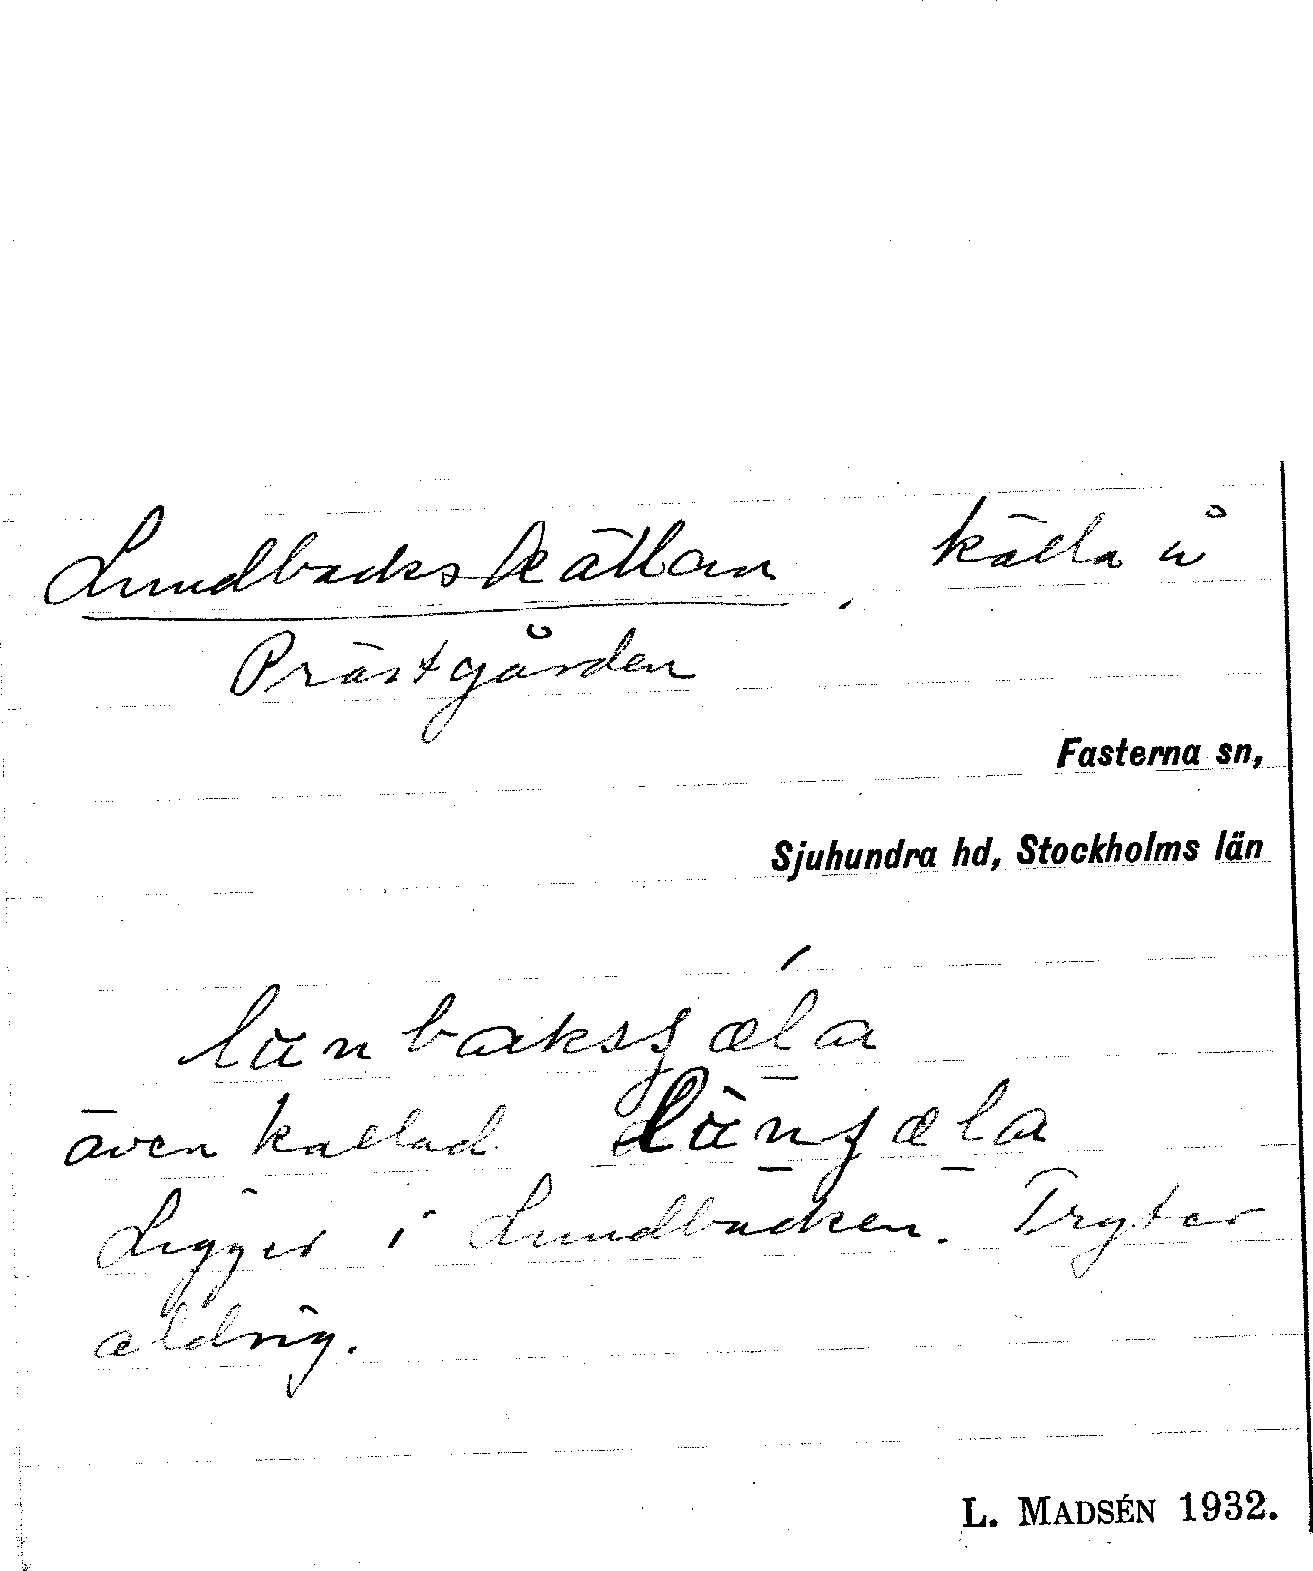 Lundbackskällan, källa å
Prästgården
Fasterna sn,
Sjuhundra hd, Stockholms län
även kallad
Ligger i Lundbacken. Tryter
aldrig.
L. MADSÉN 1932.